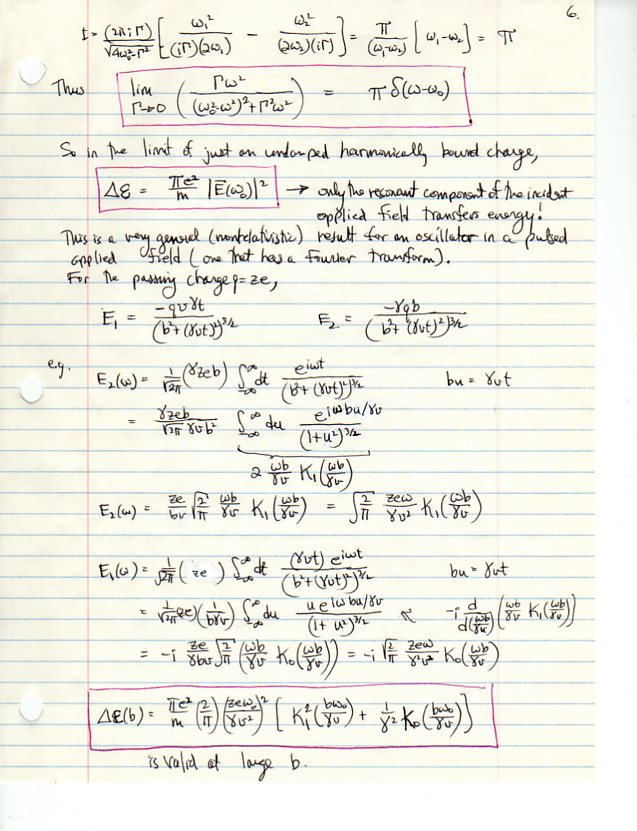 6.
I = \frac{(2\pi i Γ)}{\sqrt{4ω_0^2 - Γ^2}} [ \frac{ω_1^2}{(iΓ)(2ω_1)} - \frac{ω_2^2}{(2ω_2)(iΓ)} ] = \frac{π}{(ω_1-ω_2)} [ ω_1 - ω_2 ] = π
Thus lim_{Γ→0} ( \frac{Γω^2}{(ω_0^2-ω^2)^2 + Γ^2ω^2} ) = π δ(ω-ω_0)
So in the limit of just an undamped harmonically bound charge,
Δℰ = \frac{πe^2}{m} |\vec{E}(ω_0)|^2 → only the resonant component of the incident
applied field transfers energy!
This is a very general (nonrelativistic) result for an oscillator in a pulsed
applied field (one that has a Fourier transform).
For the passing charge q = ze,
E_1 = \frac{-qvγt}{(b^2 + (γvt)^2)^{3/2}} E_2 = \frac{-γqb}{(b^2 + (γvt)^2)^{3/2}}
e.g. E_2(ω) = \frac{1}{\sqrt{2π}} (γzeb) ∫_{-∞}^{∞} dt \frac{e^{iωt}}{(b^2 + (γvt)^2)^{3/2}} bu = γvt
= \frac{γzeb}{\sqrt{2π} γvb^2} ∫_{-∞}^{∞} du \frac{e^{iωbu/γv}}{(1+u^2)^{3/2}}
2 \frac{ωb}{γv} K_1(\frac{ωb}{γv})
E_2(ω) = \frac{ze}{bv} \sqrt{\frac{2}{π}} \frac{ωb}{γv} K_1(\frac{ωb}{γv}) = \sqrt{\frac{2}{π}} \frac{zeω}{γv^2} K_1(\frac{ωb}{γv})
E_1(ω) = \frac{1}{\sqrt{2π}} (ze) ∫_{-∞}^{∞} dt \frac{(γvt) e^{iωt}}{(b^2 + (γvt)^2)^{3/2}} bu = γvt
= \frac{1}{\sqrt{2π}} (ze) (\frac{1}{bγv}) ∫_{-∞}^{∞} du \frac{u e^{iωbu/γv}}{(1+u^2)^{3/2}} ↖ -i \frac{d}{d(\frac{ωb}{γv})} (\frac{ωb}{γv} K_1(\frac{ωb}{γv}))
= -i \frac{ze}{γbv} \sqrt{\frac{2}{π}} (\frac{ωb}{γv} K_0(\frac{ωb}{γv})) = -i \sqrt{\frac{2}{π}} \frac{zeω}{γ^2v^2} K_0(\frac{ωb}{γv})
Δℰ(b) = \frac{πe^2}{m} (\frac{2}{π}) (\frac{zeω_0}{γv^2})^2 [ K_1^2(\frac{bω_0}{γv}) + \frac{1}{γ^2} K_0(\frac{bω_0}{γv}) ]
is valid at large b.